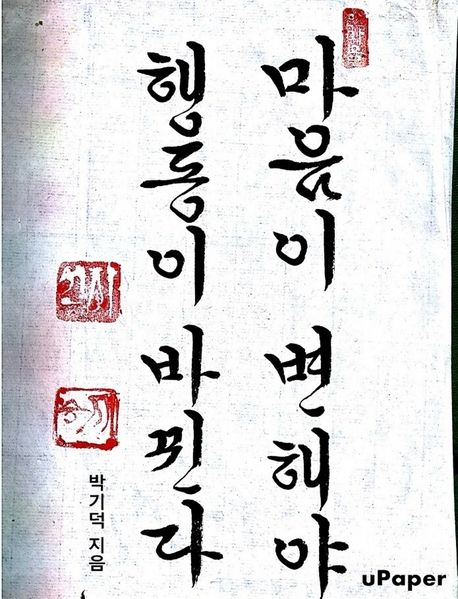 마음이 변해야
행동이 바뀐다
박기덕 지음
uPaper